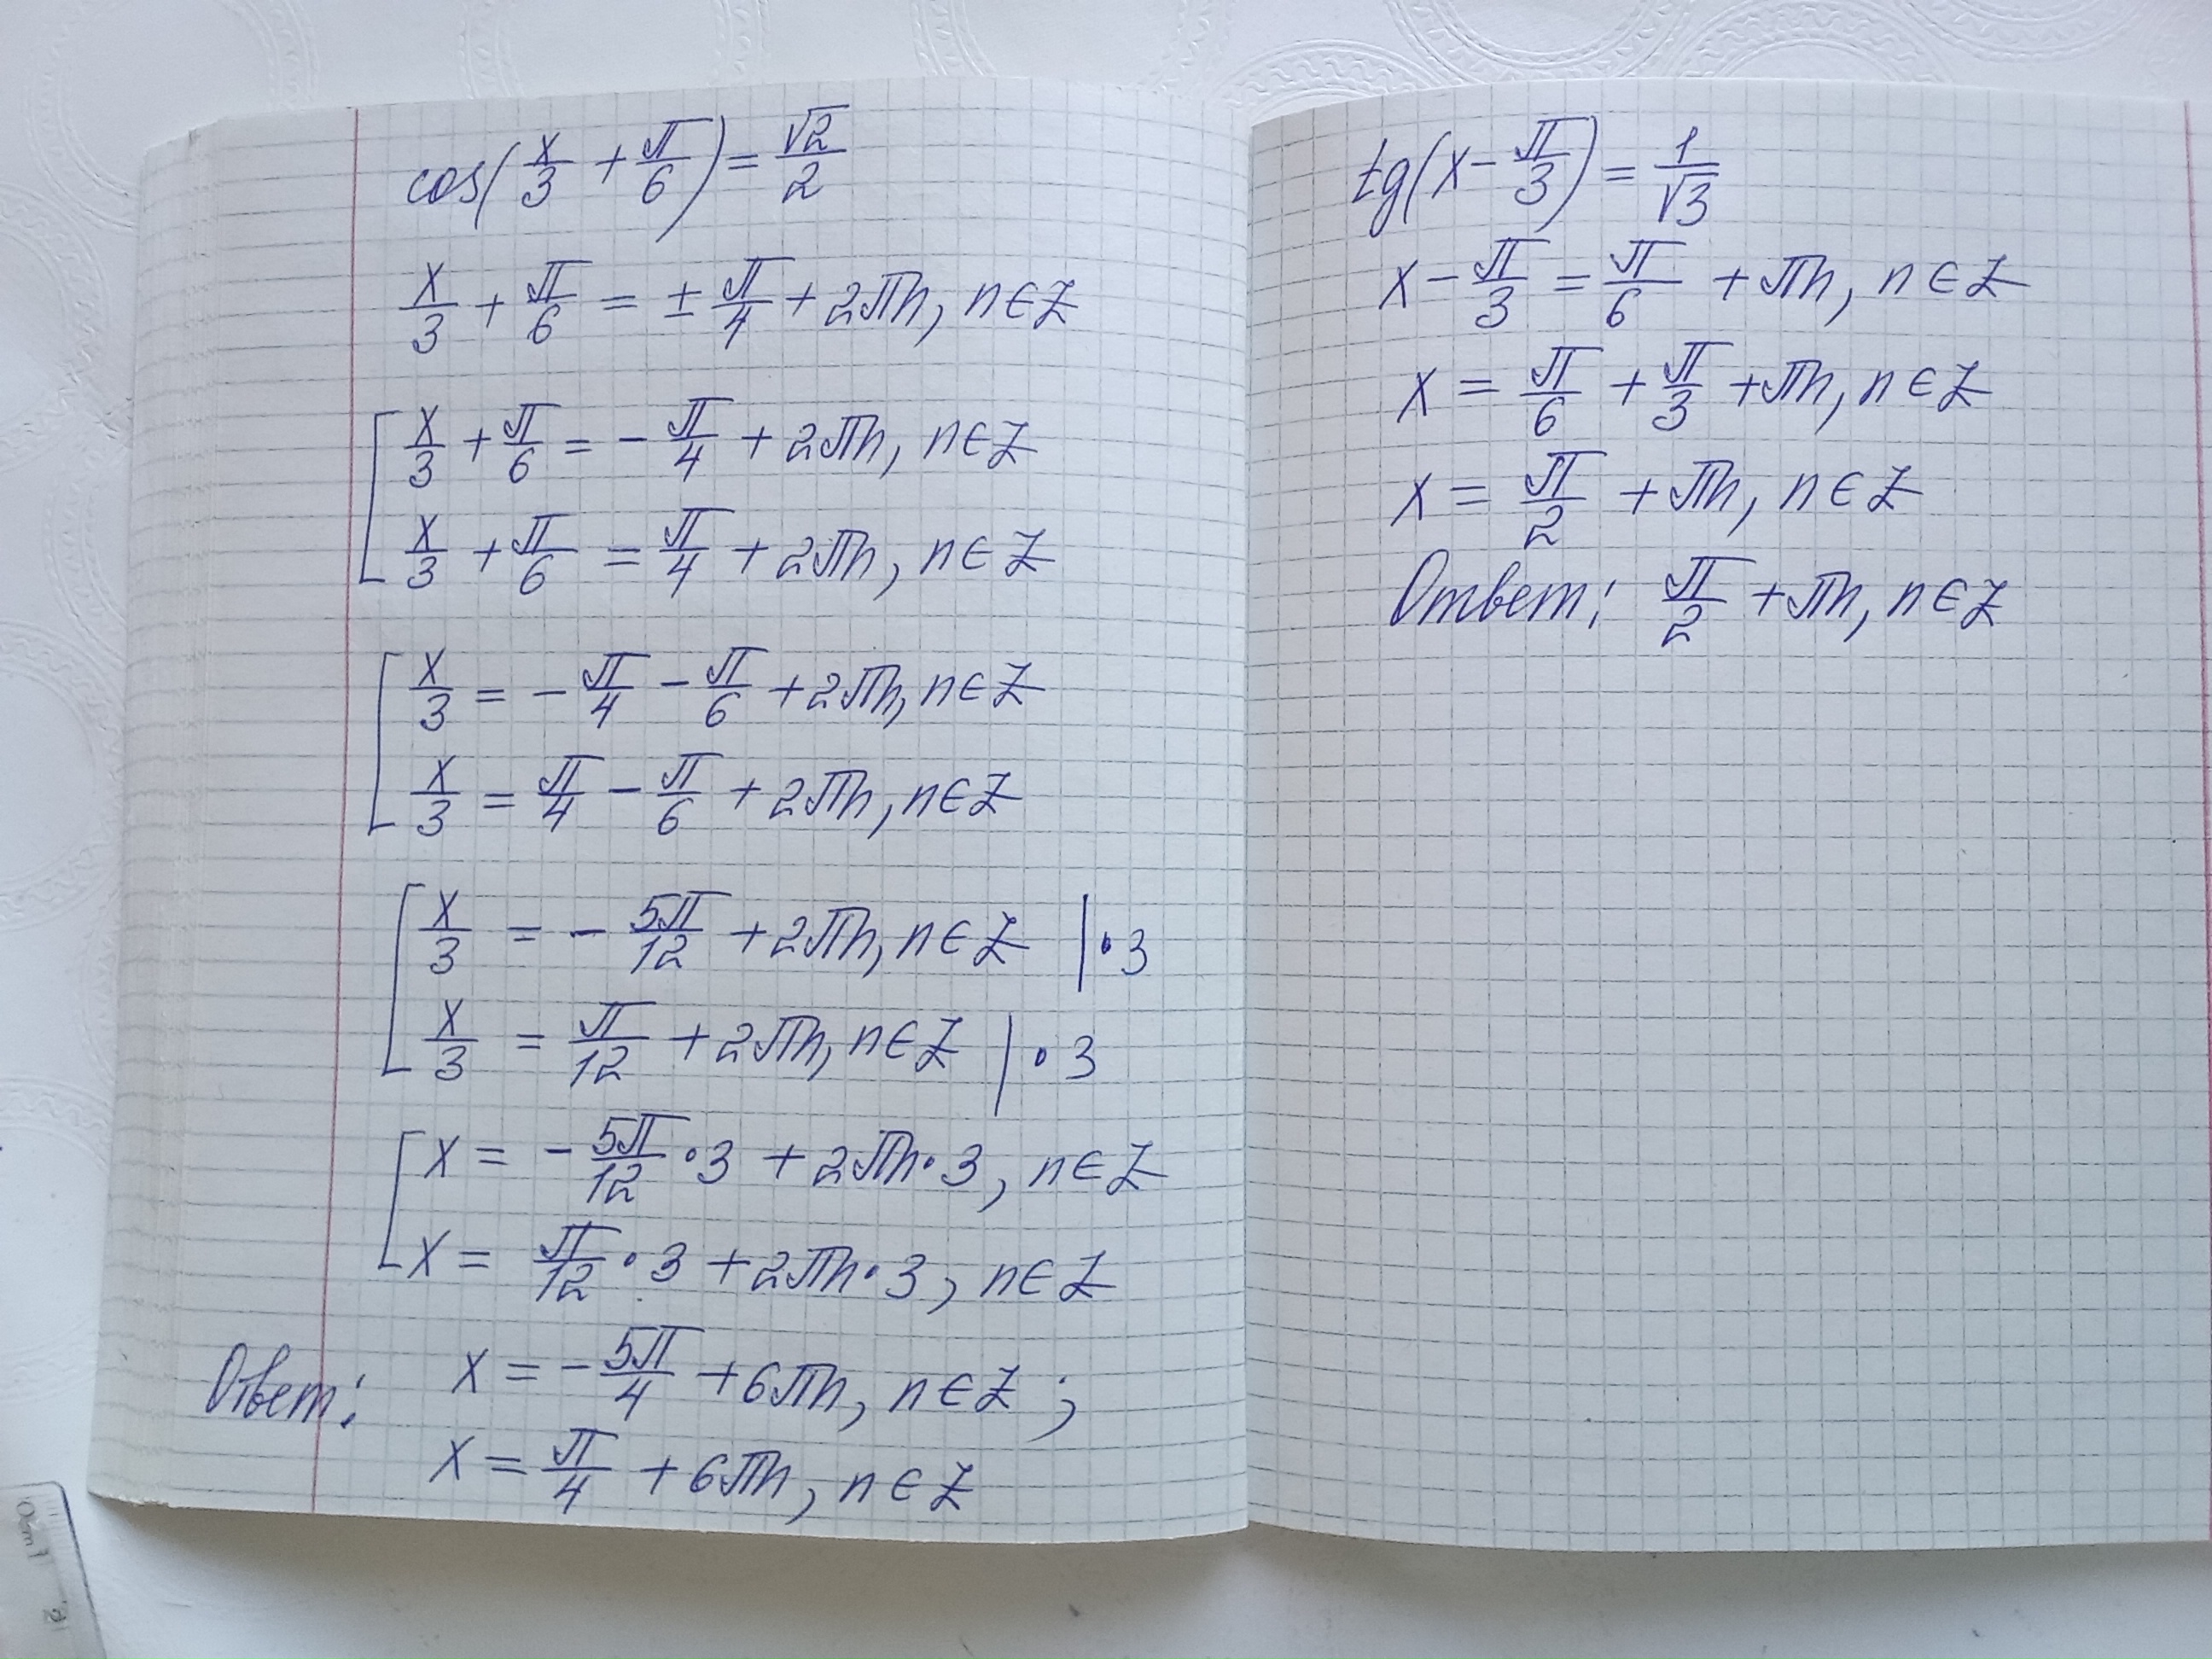 cos(x/3 + π/6) = √2/2
x/3 + π/6 = ± π/4 + 2πn, n ∈ Z
[ x/3 + π/6 = - π/4 + 2πn, n ∈ Z
x/3 + π/6 = π/4 + 2πn, n ∈ Z
[ x/3 = - π/4 - π/6 + 2πn, n ∈ Z
x/3 = π/4 - π/6 + 2πn, n ∈ Z
[ x/3 = - 5π/12 + 2πn, n ∈ Z | · 3
x/3 = π/12 + 2πn, n ∈ Z | · 3
[ x = - 5π/12 · 3 + 2πn · 3, n ∈ Z
x = π/12 · 3 + 2πn · 3, n ∈ Z
Ответ: x = - 5π/4 + 6πn, n ∈ Z ;
x = π/4 + 6πn, n ∈ Z
tg(x - π/3) = 1/√3
x - π/3 = π/6 + πn, n ∈ Z
x = π/6 + π/3 + πn, n ∈ Z
x = π/2 + πn, n ∈ Z
Ответ: π/2 + πn, n ∈ Z